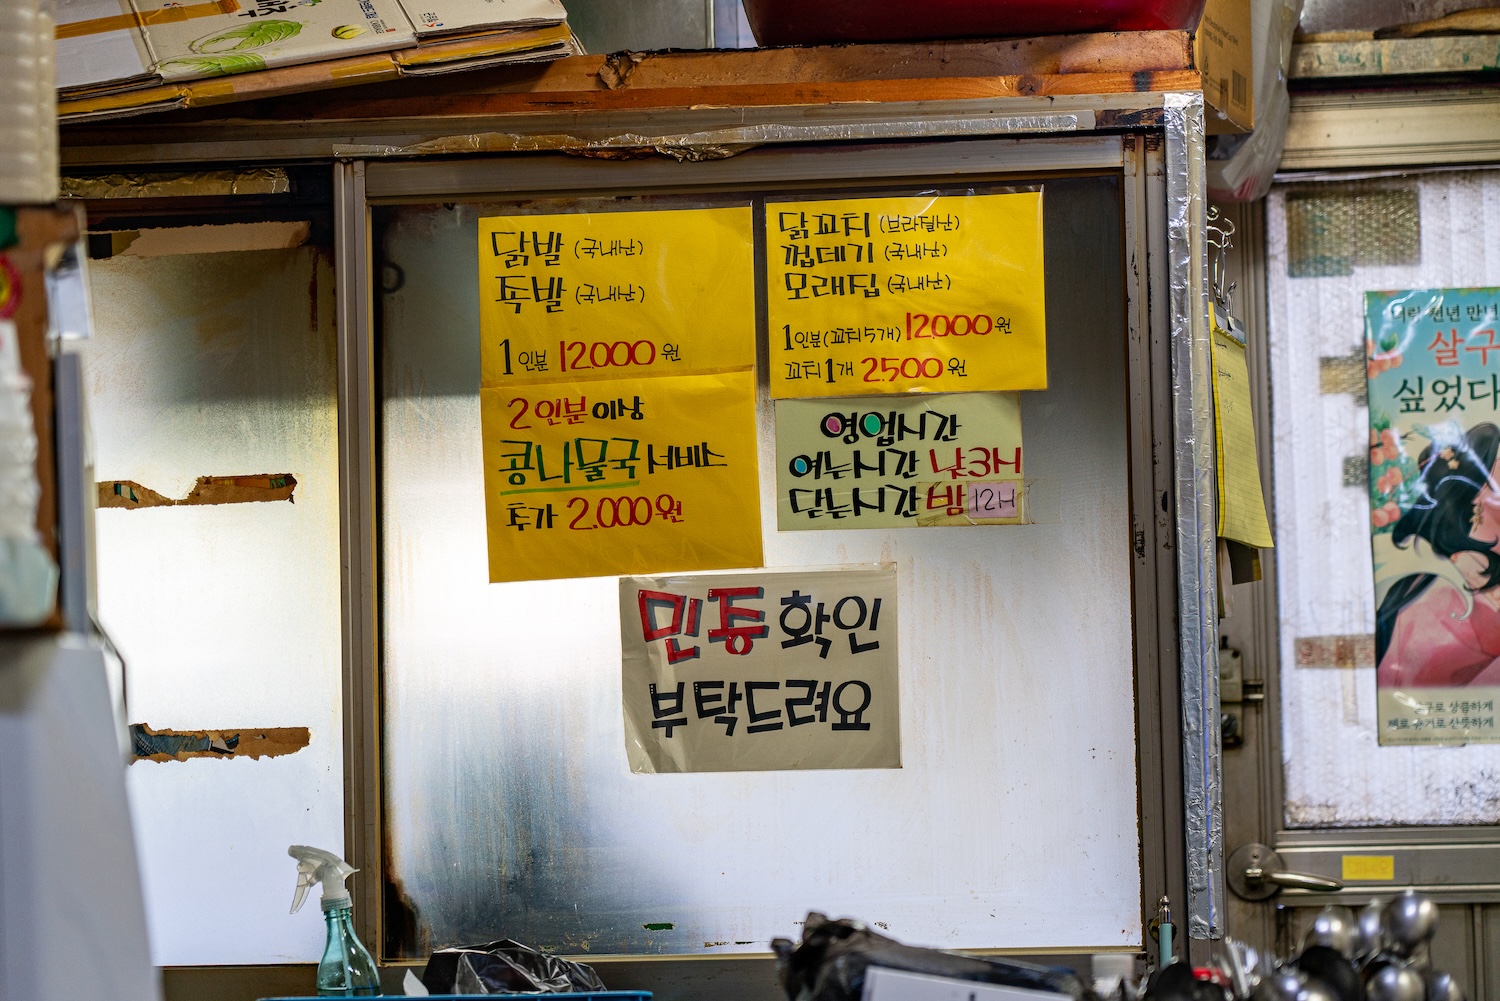 닭발 (국내산)
족발 (국내산)
1인분 12.000원
2인분 이상
콩나물국 서비스
추가 2.000원
닭꼬치 (브라질산)
껍데기 (국내산)
모래집 (국내산)
1인분(꼬치5개) 12.000원
꼬치1개 2.500원
영업시간
여는시간 낮3시
닫는시간 밤 12시
민증 확인
부탁드려요
천년 만년
살구
싶었다
상큼하게
산뜻하게